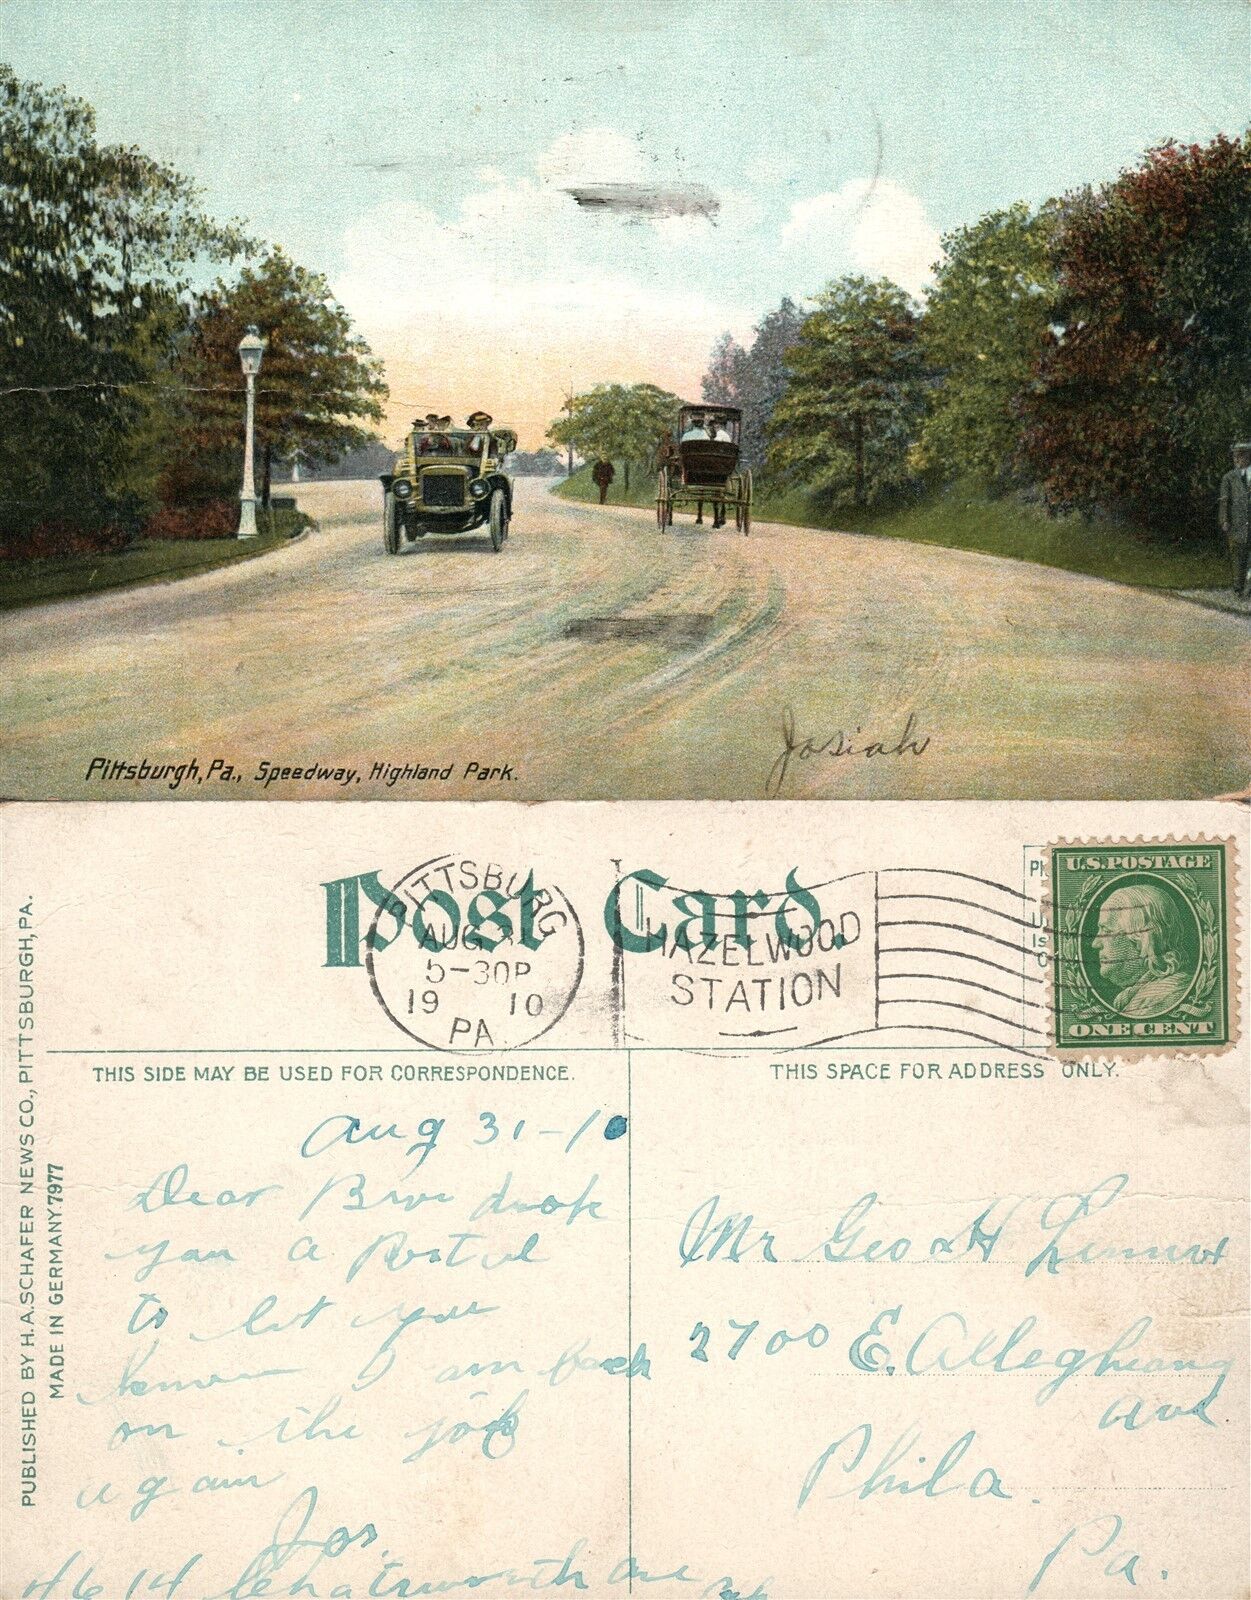 Pittsburgh, Pa., Speedway, Highland Park.
Josiah
Post Card.
PITTSBURG
AUG 31
5-30P
19 10
PA.
HAZELWOOD
STATION
U.S. POSTAGE
ONE CENT
THIS SIDE MAY BE USED FOR CORRESPONDENCE.
THIS SPACE FOR ADDRESS ONLY.
PUBLISHED BY H. A. SCHAFER NEWS CO., PITTSBURGH, PA.
MADE IN GERMANY 7977
Aug 31-10
Dear
you a Postal
to let you
know I am back
on the job
again
Jos.
4614 Chatsworth ave
Mr Geo H
2700 E. Allegheny
Ave
Phila.
Pa.